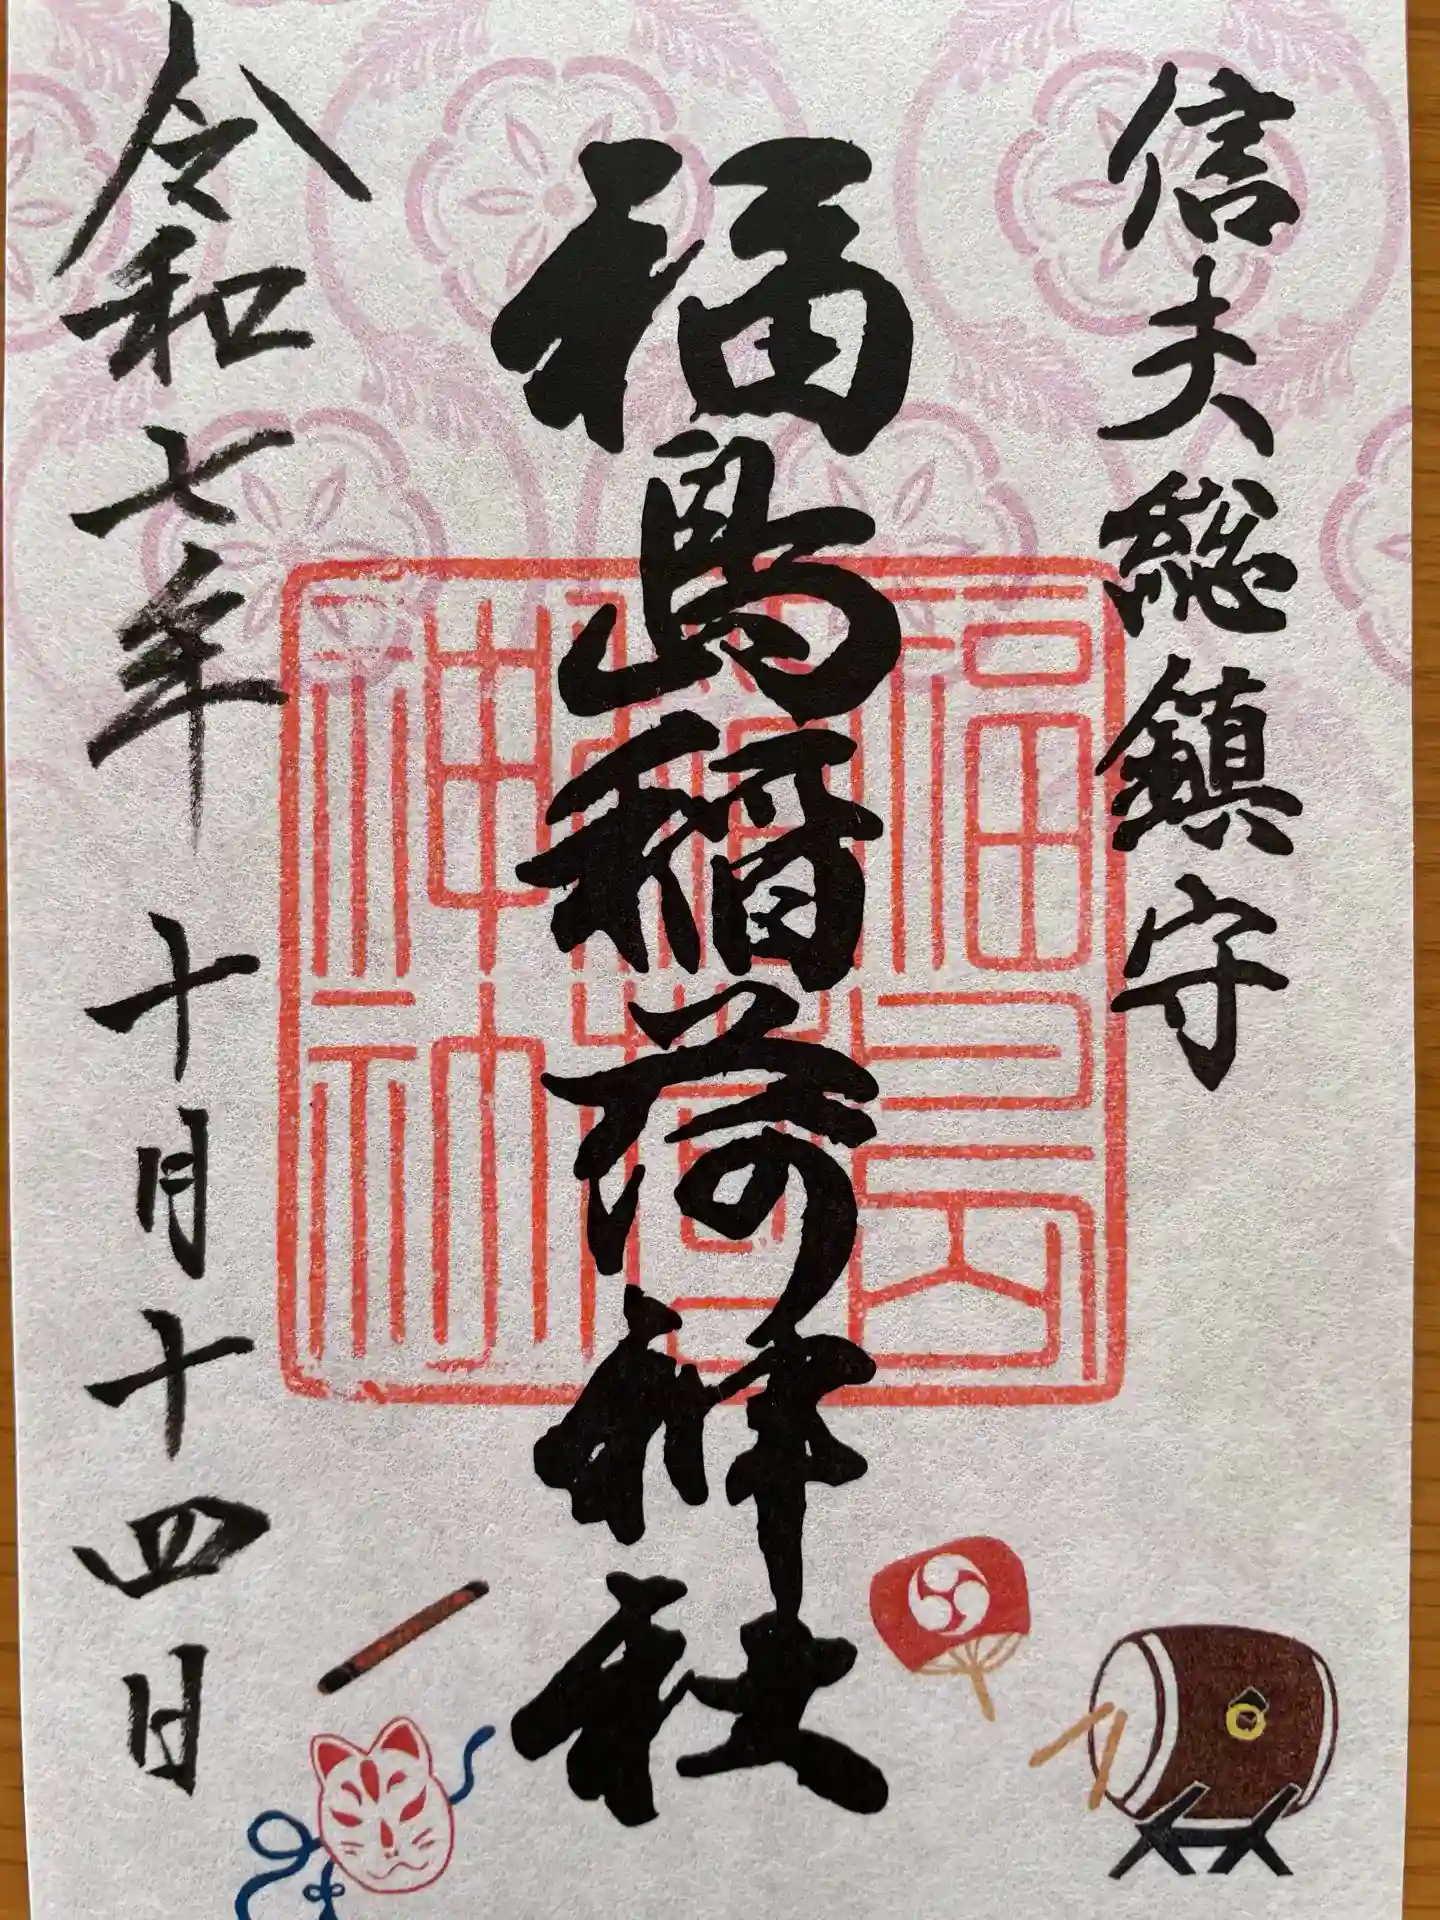 信夫総鎮守
福島稲荷神社
福島
稲荷
神社
令和七年十月十四日